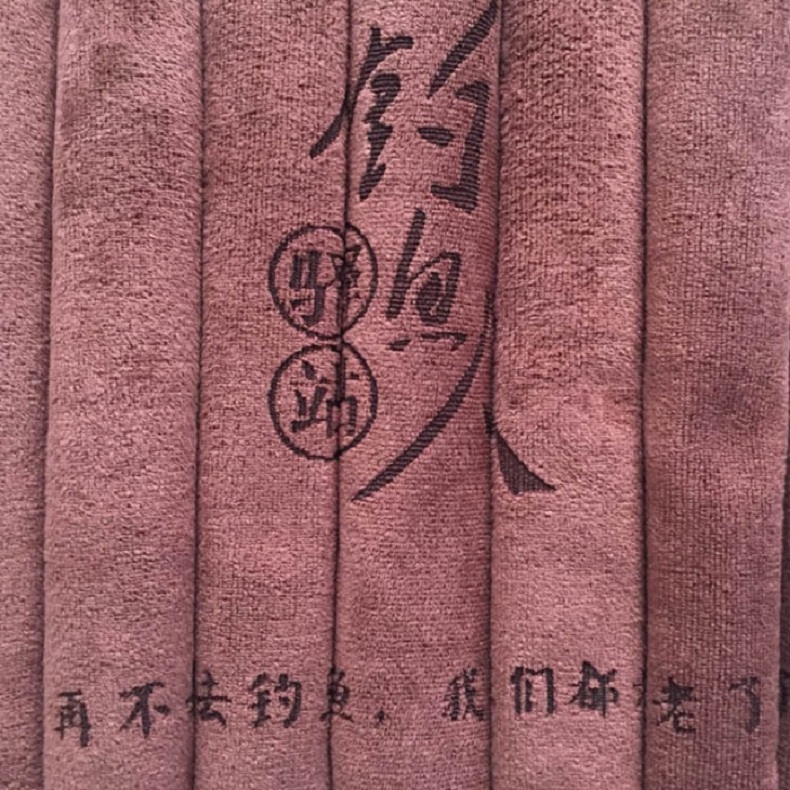 钓鱼人
驿站
再不去钓鱼，我们都老了